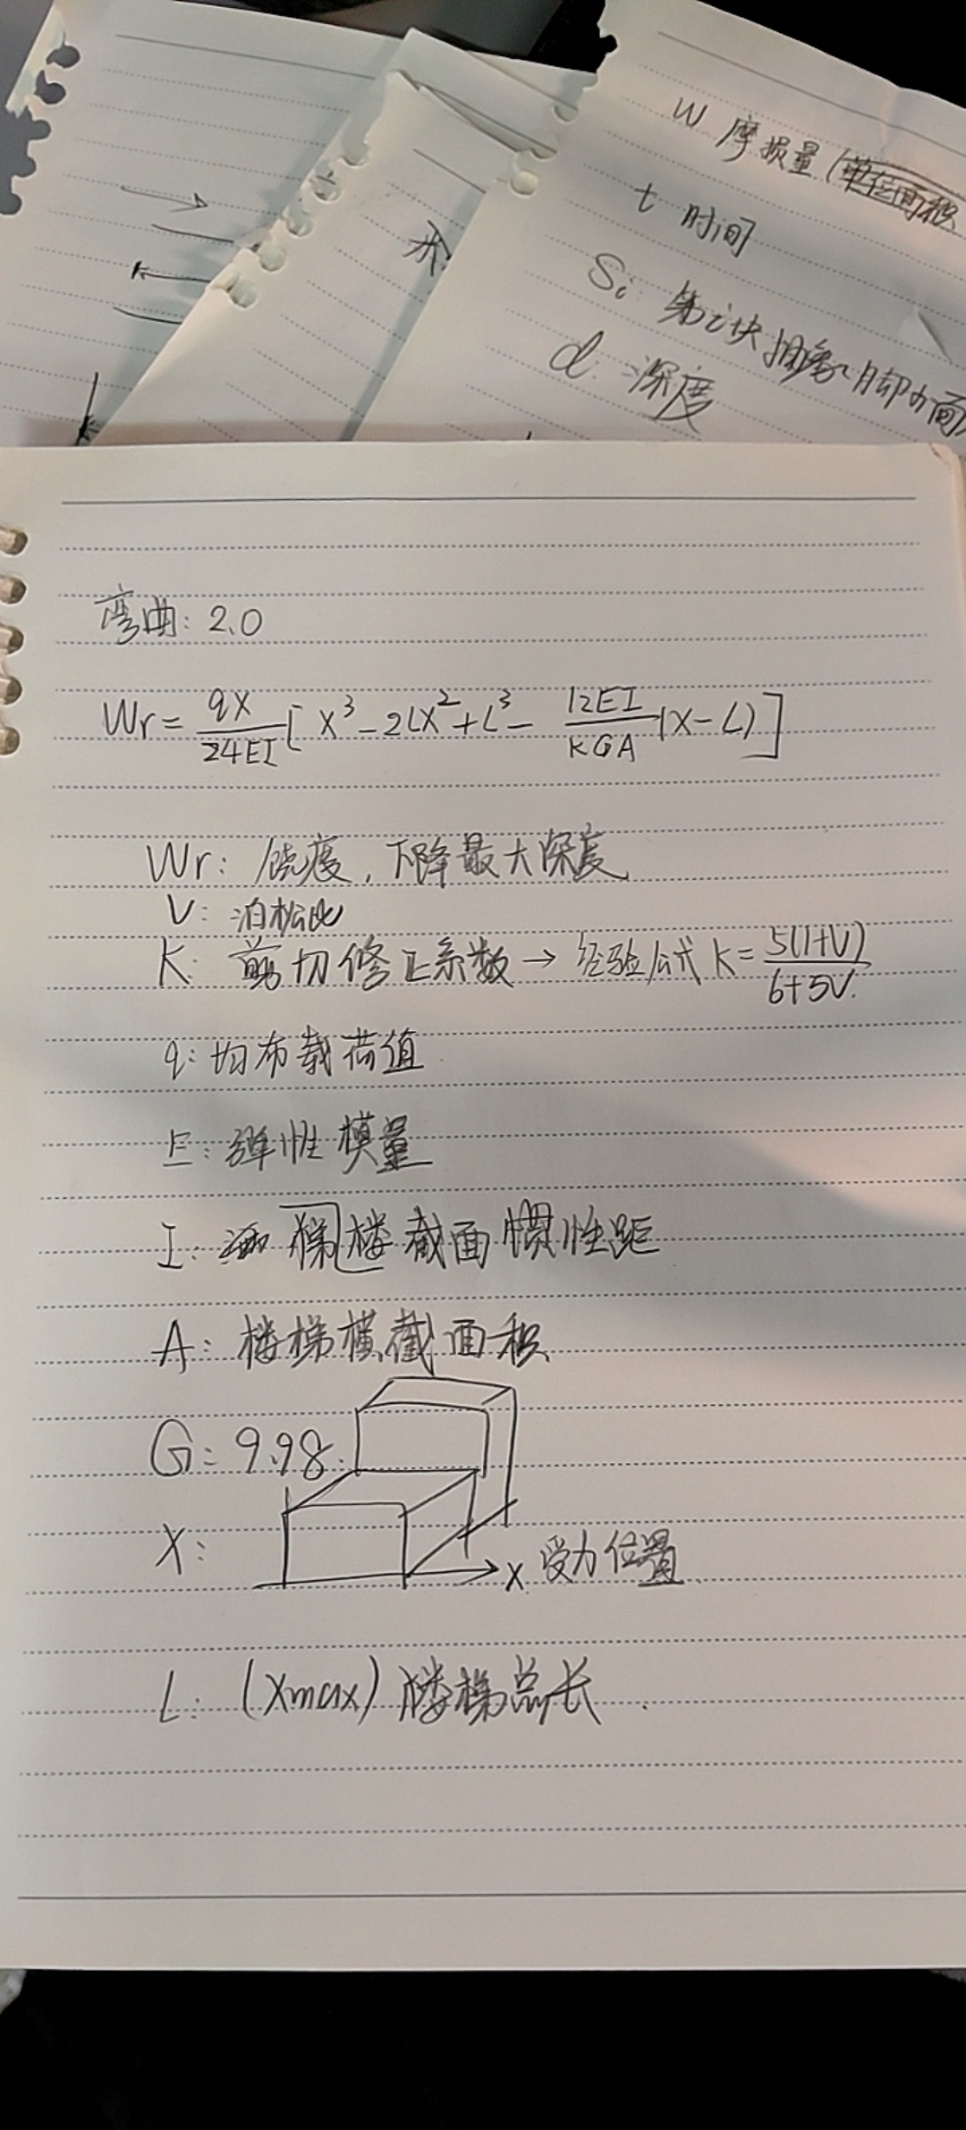 W 摩损量(单位面积
t 时间
Si: 第i块抽象脚力面
d: 深度
弯曲: 2.0
Wr = qx/24EI [x³ - 2Lx² + L³ - 12EI/KGA (x - L)]
Wr: 饶度, 下降最大深度
V: 泊松比
K: 剪切修正系数 → 经验公式 K = 5(1+V)/6+5V.
q: 均布载荷值
E: 弹性模量
I: 梯楼截面惯性距
A: 楼梯横截面积
G: 9.98.
X: x 受力位置
L: (Xmax) 楼梯总长.